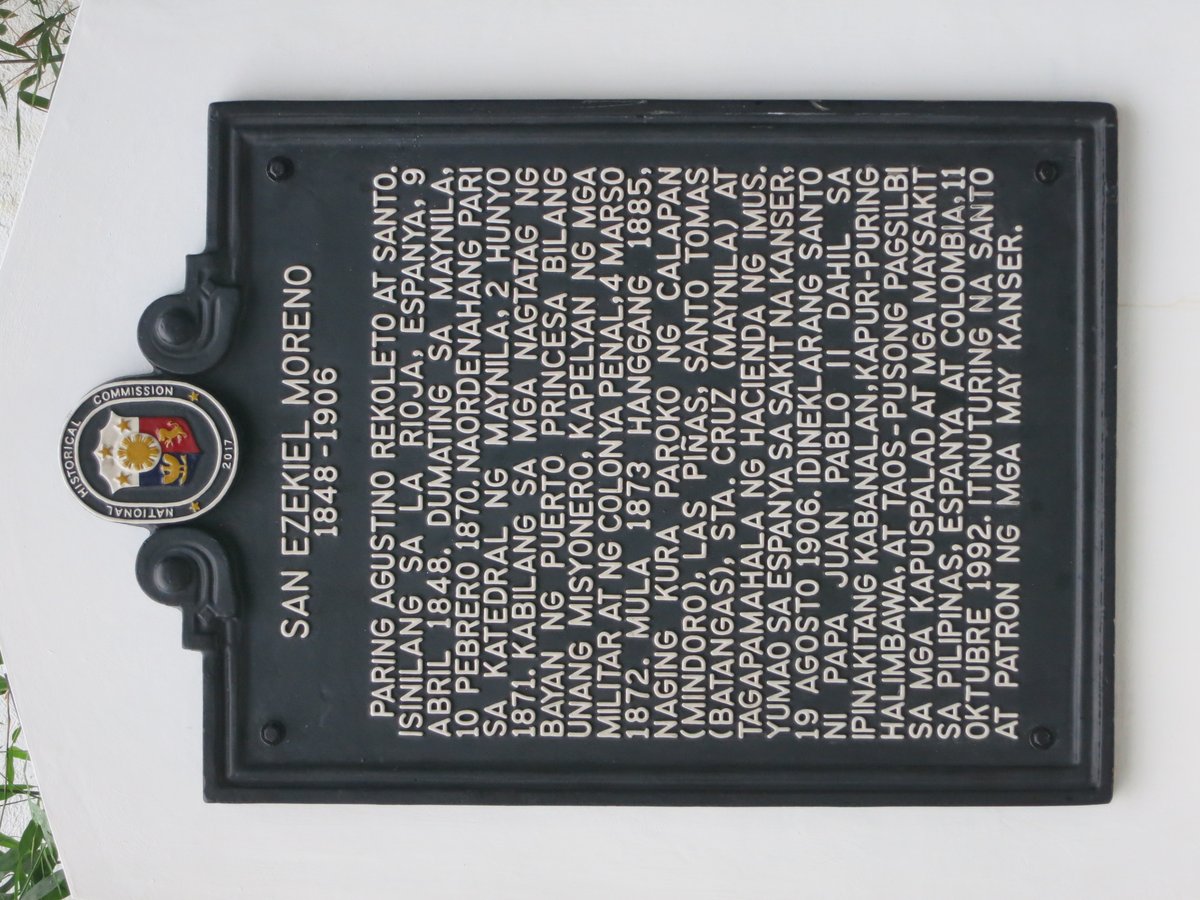 NATIONAL HISTORICAL COMMISSION
2017
SAN EZEKIEL MORENO
1848-1906
PARING AGUSTINO REKOLETO AT SANTO.
ISINILANG SA LA RIOJA, ESPANYA, 9
ABRIL 1848. DUMATING SA MAYNILA,
10 PEBRERO 1870. NAORDENAHANG PARI
SA KATEDRAL NG MAYNILA, 2 HUNYO
1871. KABILANG SA MGA NAGTATAG NG
BAYAN NG PUERTO PRINCESA BILANG
UNANG MISYONERO, KAPELYAN NG MGA
MILITAR AT NG COLONYA PENAL, 4 MARSO
1872. MULA 1873 HANGGANG 1885,
NAGING KURA PAROKO NG CALAPAN
(MINDORO), LAS PIÑAS, SANTO TOMAS
(BATANGAS), STA. CRUZ (MAYNILA) AT
TAGAPAMAHALA NG HACIENDA NG IMUS.
YUMAO SA ESPANYA SA SAKIT NA KANSER,
19 AGOSTO 1906. IDINEKLARANG SANTO
NI PAPA JUAN PABLO II DAHIL SA
IPINAKITANG KABANALAN, KAPURI-PURING
HALIMBAWA, AT TAOS-PUSONG PAGSILBI
SA MGA KAPUSPALAD AT MGA MAYSAKIT
SA PILIPINAS, ESPANYA AT COLOMBIA, 11
OKTUBRE 1992. ITINUTURING NA SANTO
AT PATRON NG MGA MAY KANSER.